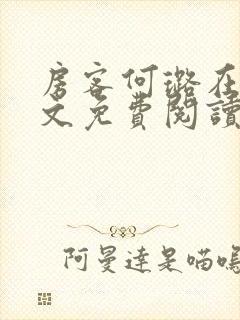 房客何璐在
文免费閱讀
阿曼達是喵嗚